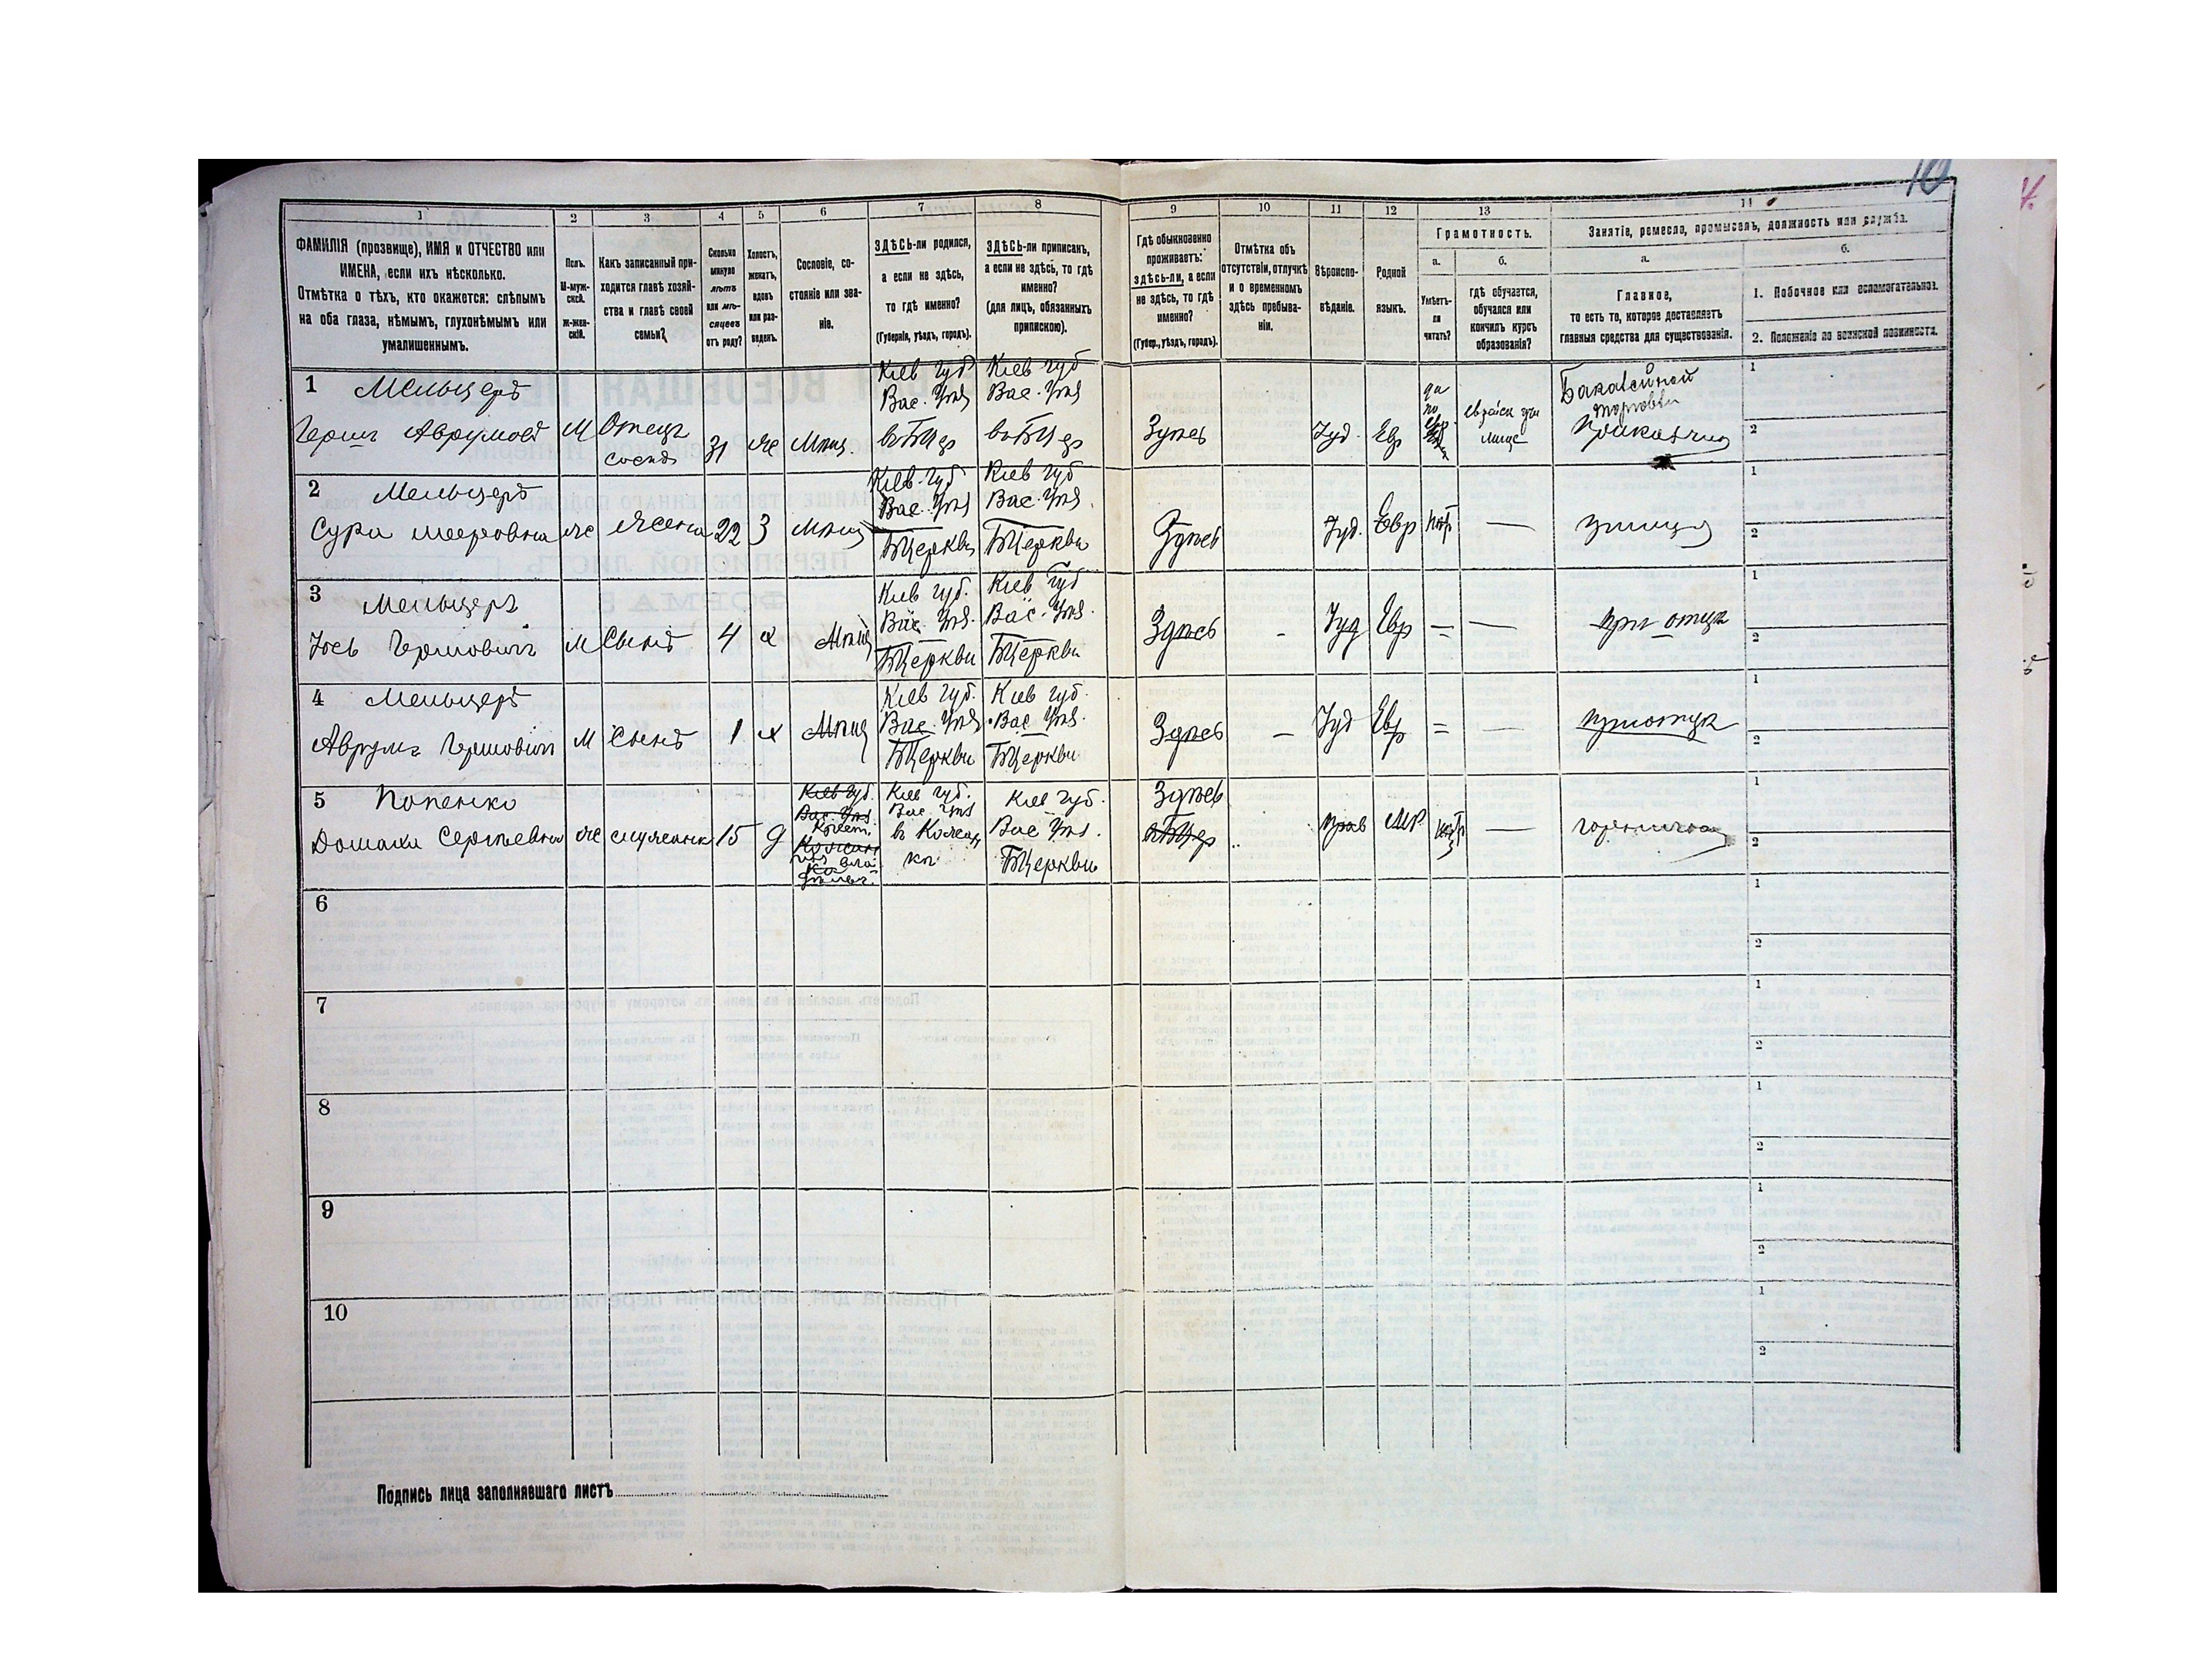 10
1
2
3
4
5
6
7
8
9
10
11
12
13
11
ФАМИЛІЯ (прозвище), ИМЯ и ОТЧЕСТВО или
ИМЕНА, если ихъ нѣсколько.
Отмѣтка о тѣхъ, кто окажется: слѣпымъ
на оба глаза, нѣмымъ, глухонѣмымъ или
умалишеннымъ.
Полъ.
М-муж-
ской.
ж-жен-
скій.
Какъ записанный при-
ходится главѣ хозяй-
ства и главѣ своей
семьи?
Сколько
минуло
лѣтъ
или мѣ-
сяцевъ
отъ роду?
Холостъ,
женатъ,
вдовъ
или раз-
веденъ.
Сословіе, со-
стояніе или зва-
ніе.
ЗДѢСЬ-ли родился,
а если не здѣсь,
то гдѣ именно?
(Губернія, уѣздъ, городъ).
ЗДѢСЬ-ли приписанъ,
а если не здѣсь, то гдѣ
именно?
(для лицъ, обязанныхъ
припискою).
Гдѣ обыкновенно
проживаетъ:
здѣсь-ли, а если
не здѣсь, то гдѣ
именно?
(Губер., уѣздъ, городъ).
Отмѣтка объ
отсутствіи, отлучкѣ
и о временномъ
здѣсь пребыва-
ніи.
Вѣроиспо-
вѣданіе.
Родной
языкъ.
Грамотность.
а.
Умѣетъ-
ли
читать?
б.
гдѣ обучается,
обучался или
кончилъ курсъ
образованія?
Занятіе, ремесло, промыселъ, должность или служба.
а.
Главное,
то есть то, которое доставляетъ
главныя средства для существованія.
б.
1. Побочное или вспомогательное.
2. Положеніе по воинской повинности.
1 Мельцеръ
Герш Аврумовъ
М
Отецъ
31
же
Мѣщ.
Кіев губ
Вас. Уѣз
въ БЦер
Кіев губ
Вас. Уѣз
въ БЦер
Здѣсь
Іуд.
Евр
да
по
евр
еврейск учи
лище
Бакалейной
торговли
Прикащик
1
2
2 Мельцеръ
Сура Мееровна
же
жена
22
З
Мѣщ
Кіев. губ
Вас. Уѣз
БЦеркви
Кіев губ
Вас. Уѣз.
БЦеркви
Здѣсь
Іуд.
Евр
—
1
2
3 Мельцеръ
Іось Гершовичъ
М
Сынъ
4
х
Мѣщ
Кіев губ.
Вас. Уѣз.
БЦеркви
Кіев губ
Вас. Уѣз.
БЦеркви
Здѣсь
-
Іуд
Евр
=
—
при отцѣ
1
2
4 Мельцеръ
Аврумъ Гершовичъ
М
Сынъ
1
х
Мѣщ
Кіев губ.
Вас. Уѣз
БЦеркви
Кіев губ.
Вас. Уѣз.
БЦеркви
Здѣсь
-
Іуд
Евр
=
—
при отцѣ
1
2
5 Попенко
Домаха Сергѣевна
же
служанка
15
д
Кіев губ.
Вас. Уѣз.
Кіев губ.
Вас Уѣз
Кіев губ.
Вас Уѣз.
БЦеркви
Здѣсь
Прав
МР
—
горничная
1
2
6
1
2
7
1
2
8
1
2
9
1
2
10
1
2
Подпись лица заполнявшаго листъ